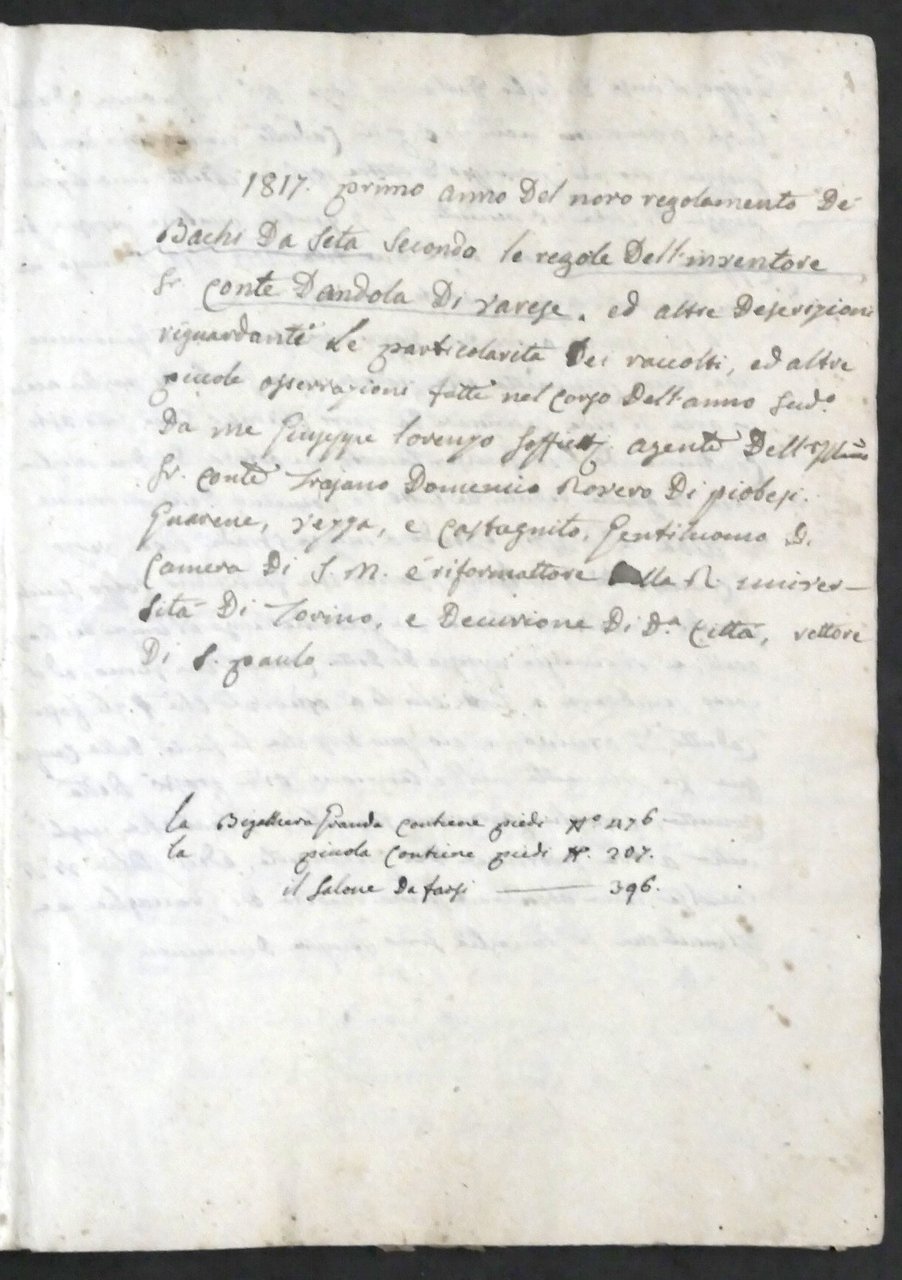 1817. primo anno Del novo regolamento De'
Bachi Da Seta secondo le regole Dell'inventore
Sr. Conte Dandola Di Varese. ed altre Descrizioni
riguardanti Le particolarità Dei raccolti, ed altre
piccole osservazioni fatte nel corso Dell'anno sud.o
Da me Giuseppe Lorenzo agente Dell'
Sr. Conte Trajano Domenico Rovero Di piobesi.
Guarene, Vezza, e Castagnito, Gentiluomo Di
Camera Di S. M. é riformattore Della R. univer-
sità Di Torino, e Decurione Di D.a Città, rettore
Di S. paulo
la Bigattiera Granda contiene piedi N.o 476
la picola contiene piedi N. 207.
il Salone Da farsi —— 396.